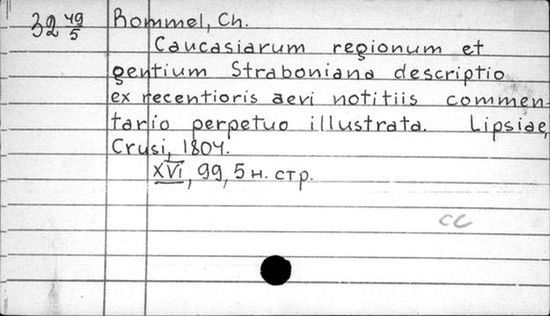 32 49/5 Rommel, Ch.
Caucasiarum regionum et
gentium Straboniana descriptio
ex recentioris aevi notitiis commen
tario perpetuo illustrata. Lipsiae,
Crusi, 1804.
XVI, 99, 5 н. стр.
CC